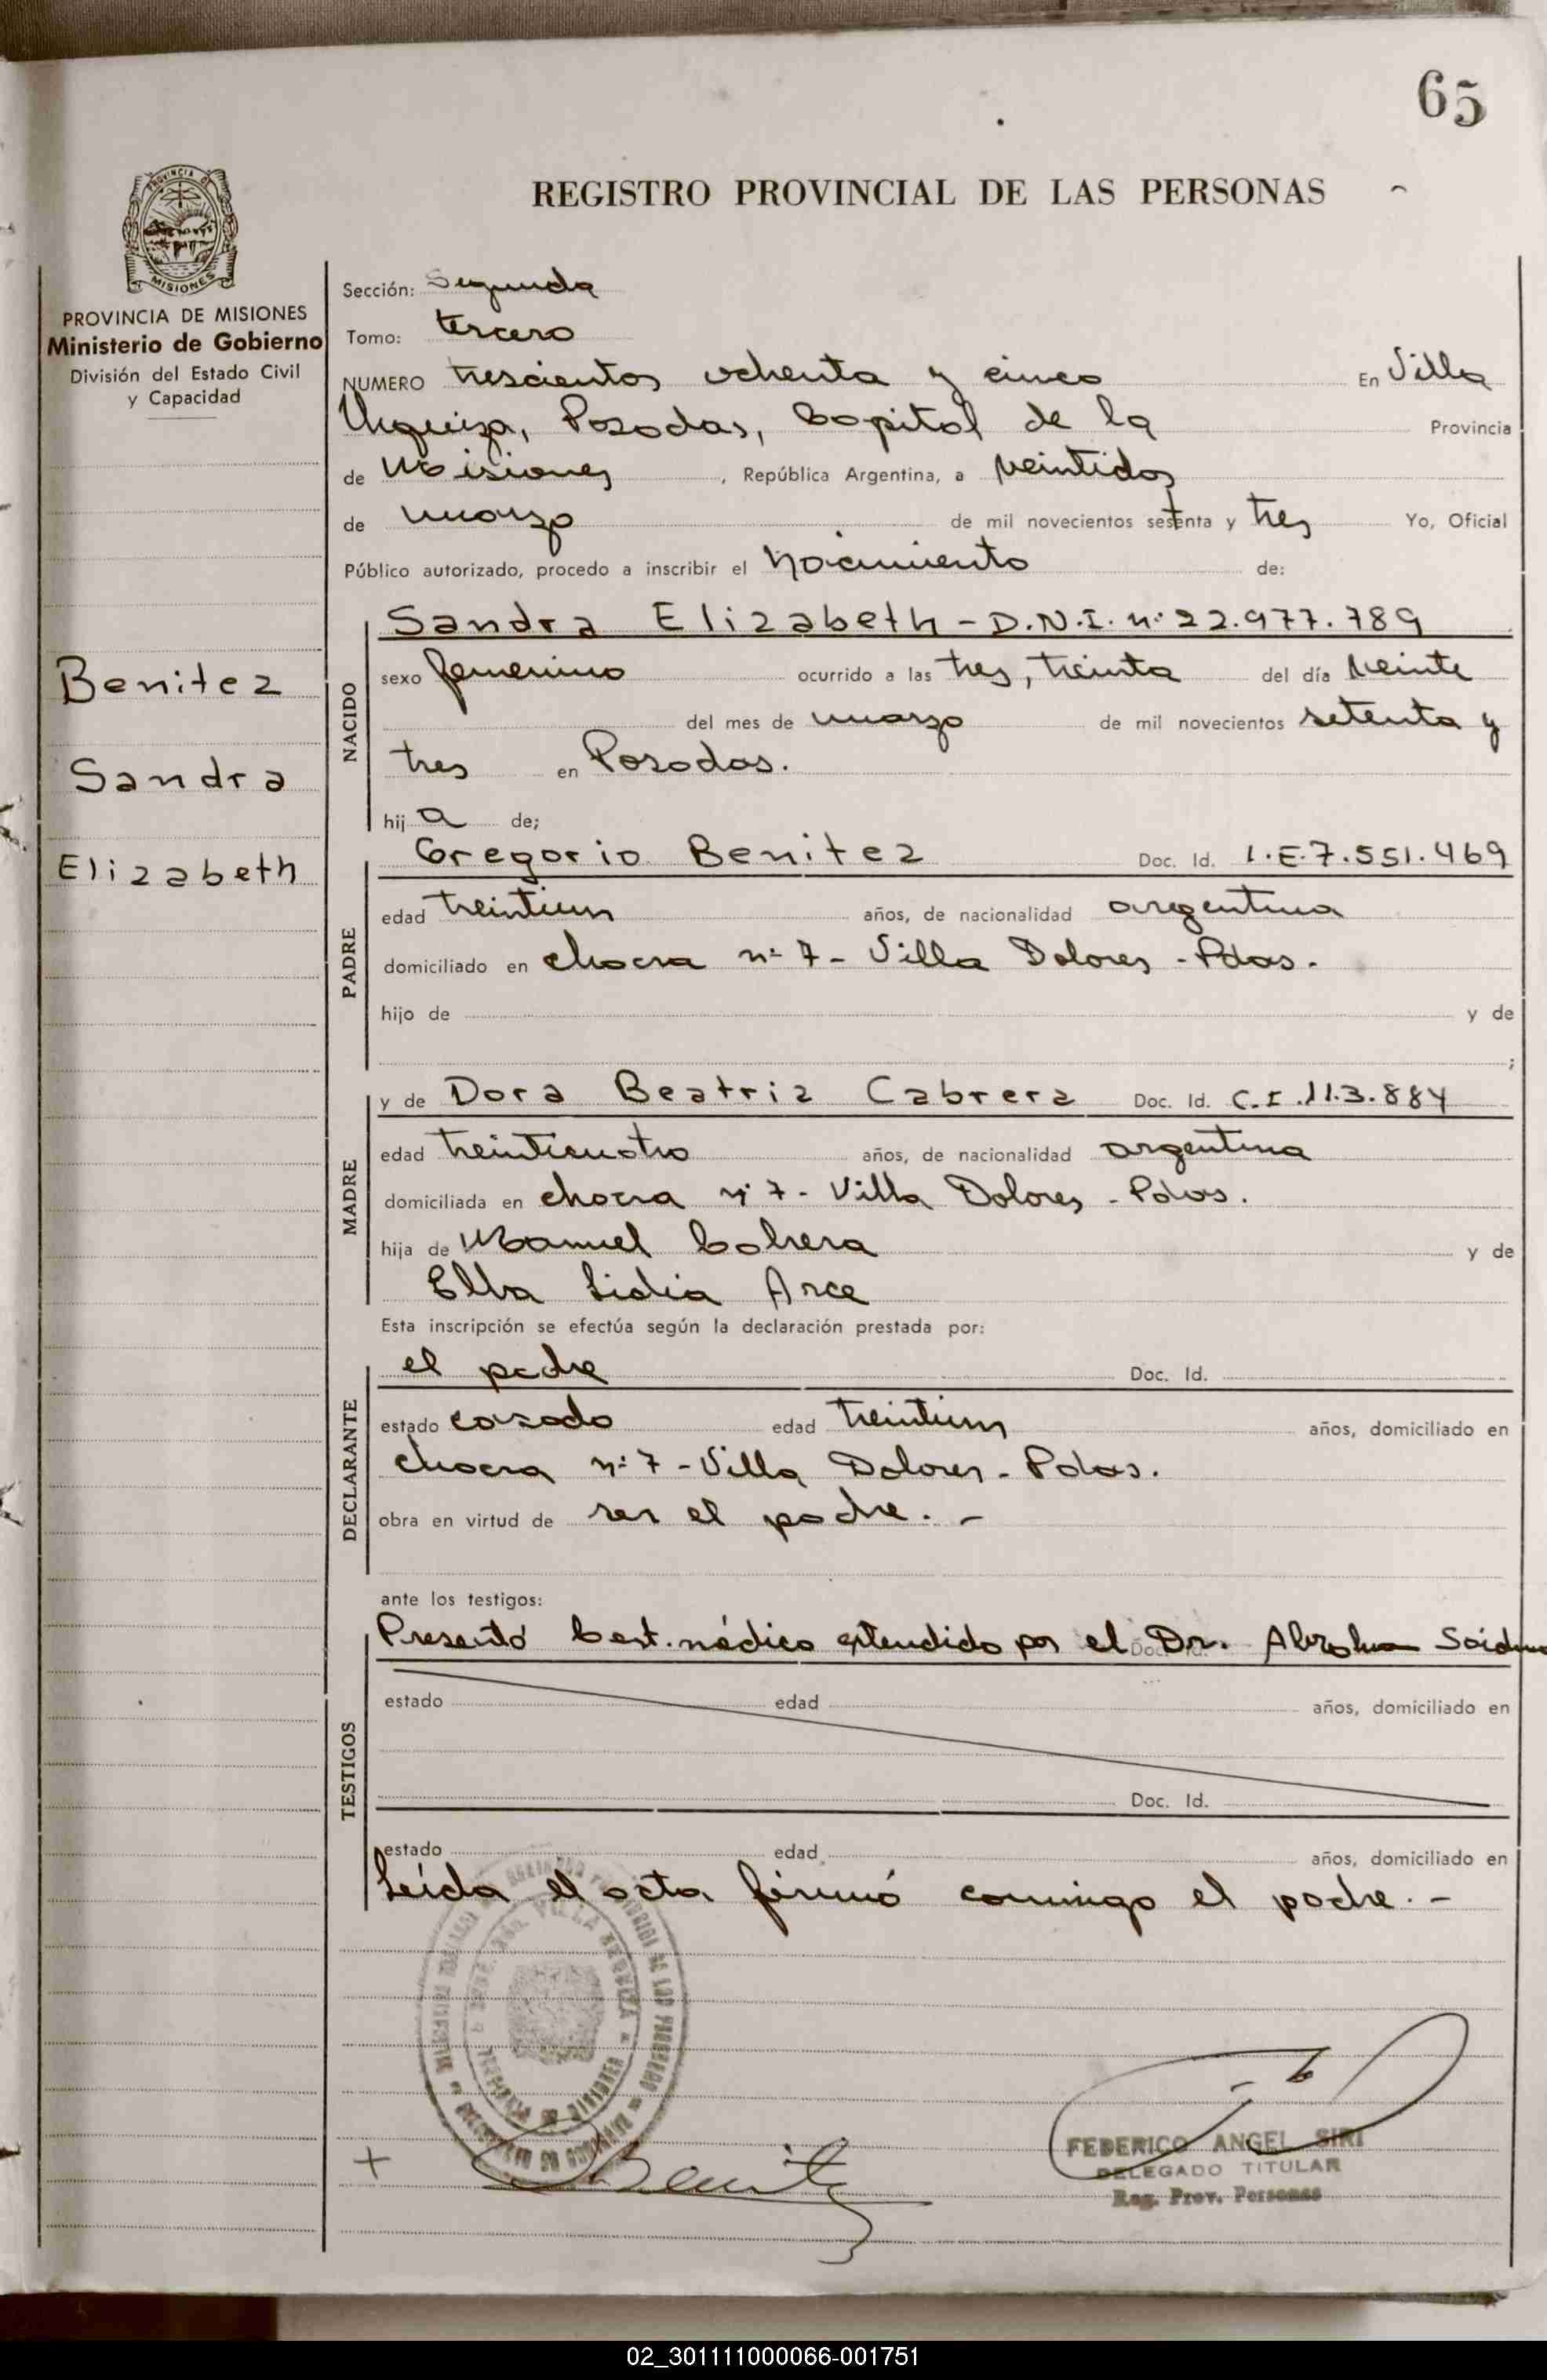 65
REGISTRO PROVINCIAL DE LAS PERSONAS
PROVINCIA DE
MISIONES
PROVINCIA DE MISIONES
Ministerio de Gobierno
División del Estado Civil
y Capacidad
Benitez
Sandra
Elizabeth
Sección: Segunda
Tomo: tercero
NUMERO trescientos ochenta y cinco En Villa
Urquiza, Posadas, Capital de la Provincia
de Misiones, República Argentina, a veintidos
de marzo de mil novecientos setenta y tres Yo, Oficial
Público autorizado, procedo a inscribir el nacimiento de:
NACIDO
Sandra Elizabeth - D.N.I. nº 22.977.789
sexo femenino ocurrido a las tres, treinta del día veinte
del mes de marzo de mil novecientos setenta y
tres en Posadas.
hija de;
PADRE
Gregorio Benitez Doc. Id. L.E. 7.551.469
edad treintiun años, de nacionalidad argentina
domiciliado en chacra nº 7 - Villa Dolores - Pdas.
hijo de y de
;
MADRE
y de Dora Beatriz Cabrera Doc. Id. C.I. 113.884
edad treinticuatro años, de nacionalidad argentina
domiciliada en chacra nº 7 - Villa Dolores - Pdas.
hija de Manuel Cabrera y de
Elba Lidia Arce
Esta inscripción se efectúa según la declaración prestada por:
DECLARANTE
el padre Doc. Id.
estado casado edad treintiun años, domiciliado en
chacra nº 7 - Villa Dolores - Pdas.
obra en virtud de ser el padre. -
ante los testigos:
TESTIGOS
Presentó Cert. médico extendido por el Dr. Abraham
estado edad años, domiciliado en
Doc. Id.
estado edad años, domiciliado en
Leída el acta firmó conmigo el padre. -
Benitez
FEDERICO ANGEL SIRI
DELEGADO TITULAR
Reg. Prov. Personas
02_301111000066-001751